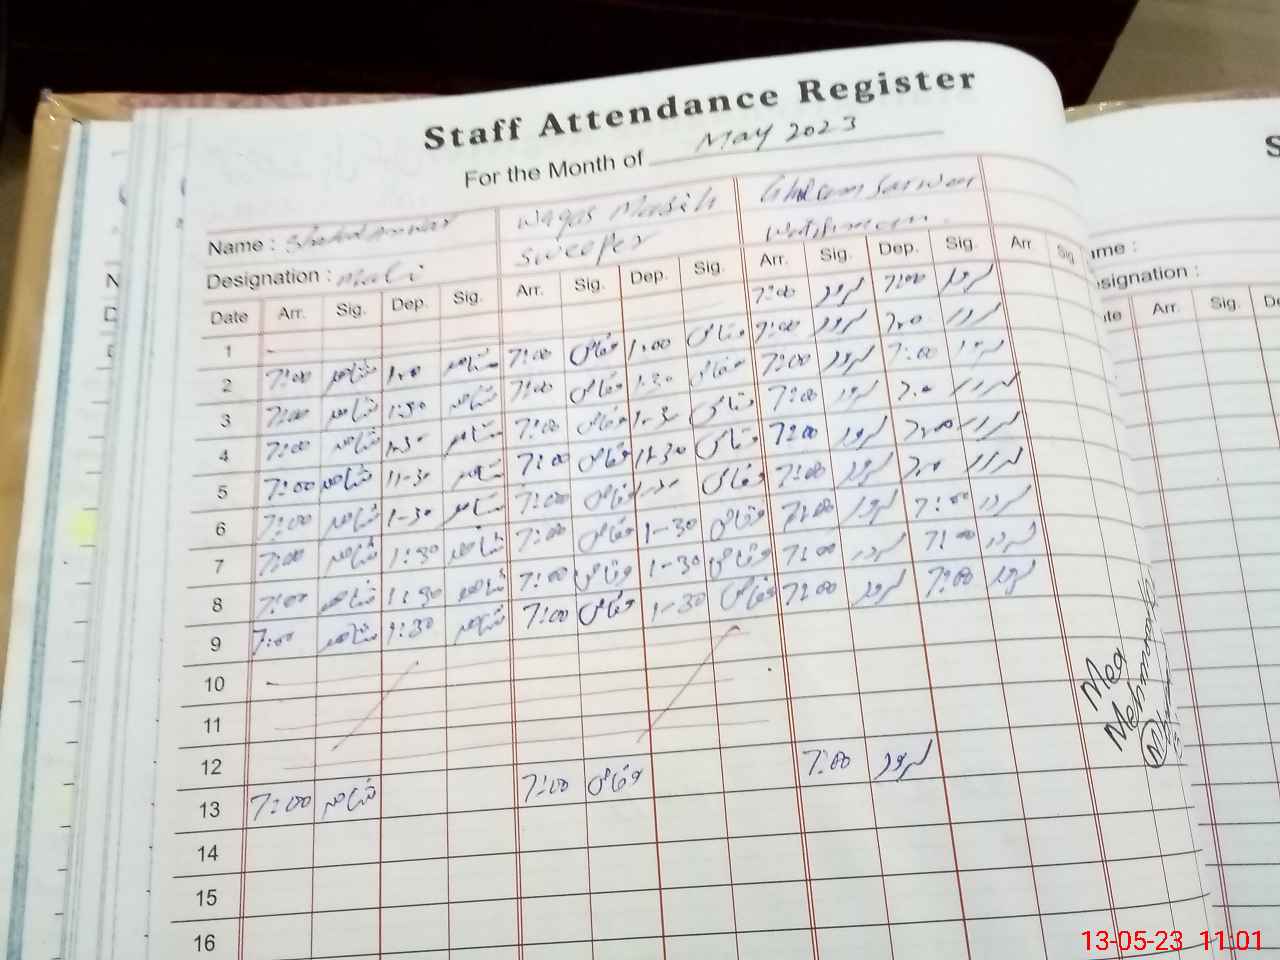 Staff Attendance Register
For the Month of May 2023
Name : Shahid Anwar Waqas Masih Ghulam Sarwar
Designation : Mali Sweeper Watchman
Date Arr. Sig. Dep. Sig. Arr. Sig. Dep. Sig. Arr. Sig. Dep. Sig. Arr Sig
1 7:00 سرور 7:00 سرور
2 7:00 شاھد 1:00 شاھد 7:00 وقاص 1:00 وقاص 7:00 سرور 7:00 سرور
3 7:00 شاھد 1:30 شاھد 7:00 وقاص 1-30 وقاص 7:00 سرور 7:00 سرور
4 7:00 شاھد 1-30 شاھد 7:00 وقاص 1-30 وقاص 7:00 سرور 7:00 سرور
5 7:00 شاھد 1-30 شاھد 7:00 وقاص 1-30 وقاص 7:00 سرور 7:00 سرور
6 7:00 شاھد 1-30 شاھد 7:00 وقاص 1-30 وقاص 7:00 سرور 7:00 سرور
7 7:00 شاھد 1:30 شاھد 7:00 وقاص 1-30 وقاص 7:00 سرور 7:00 سرور
8 7:00 شاھد 1:30 شاھد 7:00 وقاص 1-30 وقاص 7:00 سرور 7:00 سرور
9 7:00 شاھد 1:30 شاھد 7:00 وقاص 1-30 وقاص 7:00 سرور 7:00 سرور
10
11
12
13 7:00 شاھد 7:00 وقاص 7:00 سرور
14
15
16
Mea
Mehmooda
S
me :
signation :
te Arr. Sig. De
13-05-23 11:01